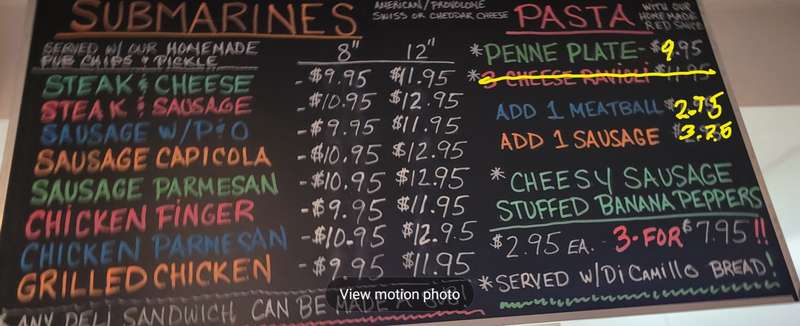 SUBMARINES
AMERICAN/PROVOLONE
SWISS OR CHEDDAR CHEESE
SERVED W/ OUR HOMEMADE
PUB CHIPS & PICKLE
8" 12"
STEAK & CHEESE - $9.95 $11.95
STEAK & SAUSAGE - $10.95 $12.95
SAUSAGE W/P&O - $9.95 $11.95
SAUSAGE CAPICOLA - $10.95 $12.95
SAUSAGE PARMESAN - $10.95 $12.95
CHICKEN FINGER - $9.95 $11.95
CHICKEN PARMESAN - $10.95 $12.95
GRILLED CHICKEN - $9.95 $11.95
ANY DELI SANDWICH CAN BE MADE A SUB!
PASTA
WITH OUR
HOMEMADE
RED SAUCE
*PENNE PLATE - $9.95
*3 CHEESE RAVIOLI $11.95
ADD 1 MEATBALL $2.75
ADD 1 SAUSAGE $3.25
*CHEESY SAUSAGE
STUFFED BANANA PEPPERS
$2.95 EA. 3-FOR $7.95!!
*SERVED W/DiCamillo BREAD!
View motion photo